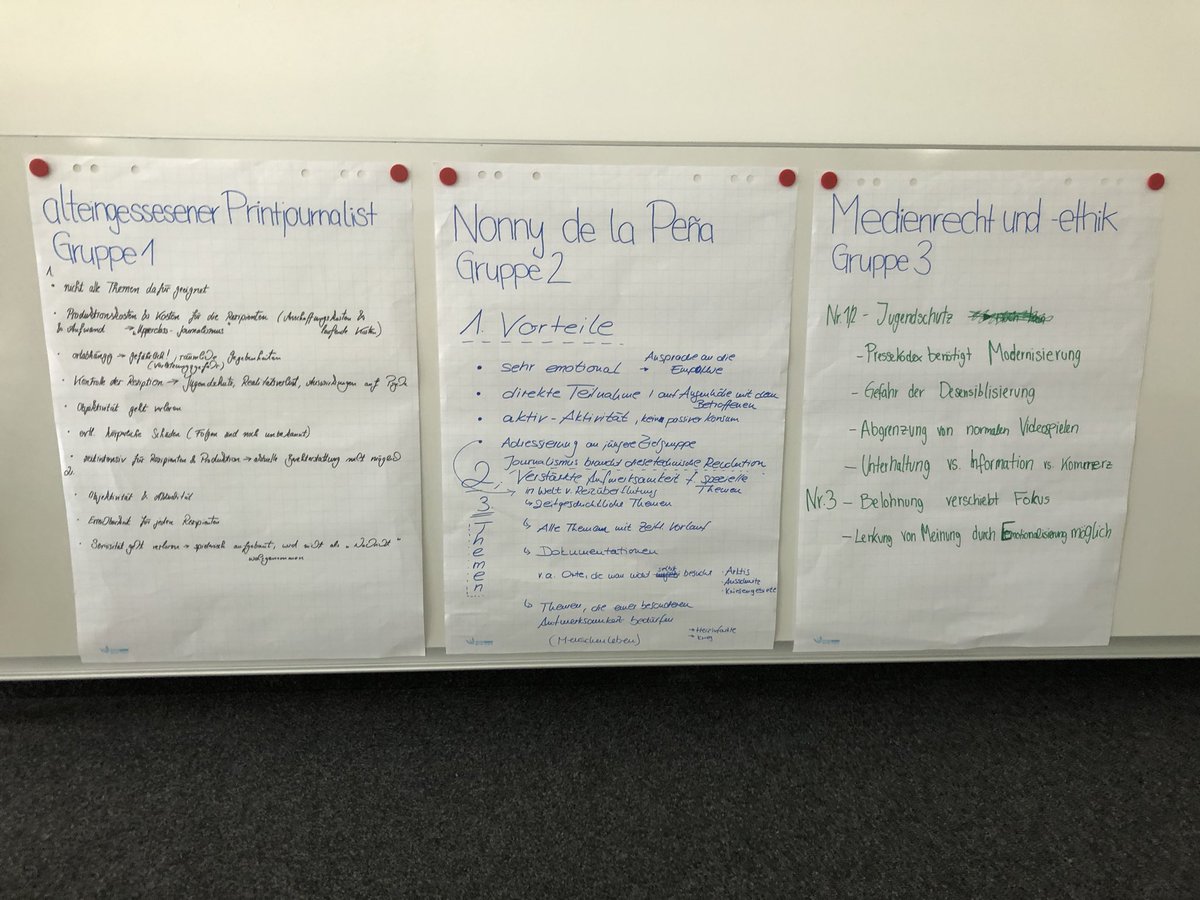 alteingessesener Printjournalist
Gruppe 1
1.
• nicht alle Themen dafür geeignet
• Produktionskosten & Kosten für die Rezipienten (Anschaffungskosten &
& Aufwand → „Upperclass-Journalismus" laufende Kosten)
• ortsabhängig → gefährlich!, räumliche Gegebenheiten
(Verletzungsgefahr)
• Kontrolle der Rezeption → Jugendschutz, Realitätsverlust, Auswirkungen auf
• Objektivität geht verloren
• evtl. körperliche Schäden (Folgen sind noch unbekannt)
• zeitintensiv für Rezipienten & Produktion → aktuelle Berichterstattung nicht möglich
2.
• Objektivität & Aktualität
• für jeden Rezipienten
• Seriosität geht verloren → spielerisch aufgebaut, wird nicht als „Nachricht"
wahrgenommen
Nonny de la Peña
Gruppe 2
1. Vorteile
• sehr emotional → Ansprache an die
Empathie
• direkte Teilnahme / auf Augenhöhe mit dem
Betroffenen
• aktiv-Aktivität, kein passiver Konsum
• Adressierung an jüngere Zielgruppe
Journalismus braucht diese technische Revolution
2. Verstärkte Aufmerksamkeit f. spezielle
→ in Welt v. Reizüberflutung Themen
↳ zeitgeschichtliche Themen
3. Themen
↳ Alle Themen mit Vorlauf
↳ Dokumentationen
v.a. Orte, die man nicht selbst besucht · Arktis
· Auschwitz
· Kriesengebiete
↳ Themen, die einer besonderen
Aufmerksamkeit bedürfen
(Menschenleben)
→ Krieg
Medienrecht und -ethik
Gruppe 3
Nr. 1/2 - Jugendschutz
- Pressekodex benötigt Modernisierung
- Gefahr der Desensiblisierung
- Abgrenzung von normalen Videospielen
- Unterhaltung vs. Information vs. Kommerz
Nr. 3 - Belohnung verschiebt Fokus
- Lenkung von Meinung durch Emotionalisierung möglich